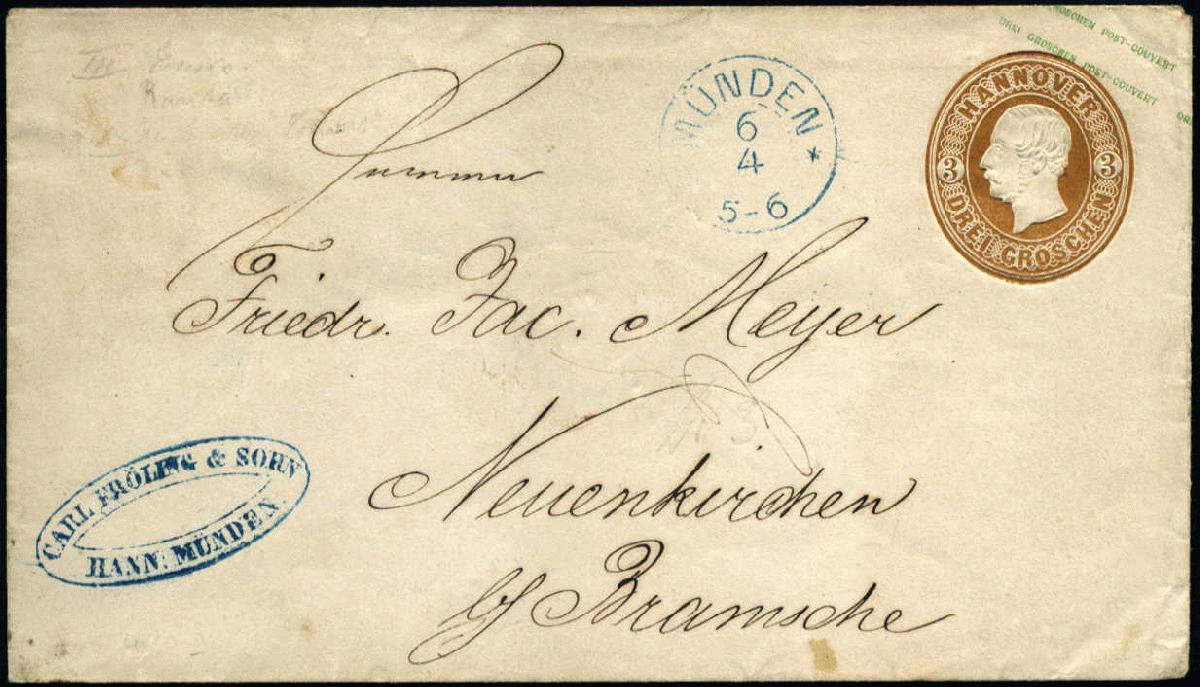 GROSCHEN POST-COUVERT
DREI GROSCHEN POST-COUVERT
HANNOVER
3 3
DREI GROSCHEN
MÜNDEN *
6
4
5-6
Friedr. Jac. Meyer
Neuenkirchen
b/ Bramsche
CARL FRÖLING & SOHN
HANN: MÜNDEN.
3.